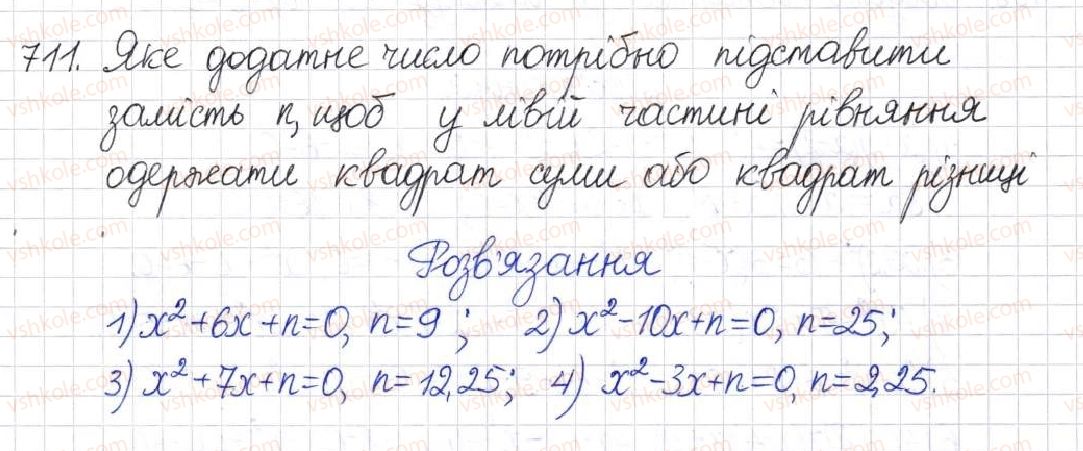 711. Яке додатне число потрібно підставити
замість n, щоб у лівій частині рівняння
одержати квадрат суми або квадрат різниці
Розв'язання
1) x²+6x+n=0, n=9; 2) x²-10x+n=0, n=25;
3) x²+7x+n=0, n=12,25; 4) x²-3x+n=0, n=2,25.
vshkole.com